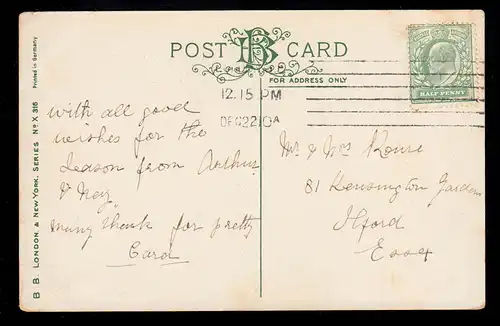 POST BB CARD
FOR ADDRESS ONLY
HALF PENNY
12.15 PM
DEC 22 10A
with all good
wishes for the
Season from Arthur
& May
many thank for pretty
Card
Mr & Mrs
81 Kensington Gardens
Ilford
Essex
B B. LONDON & NEW YORK. SERIES No X 316
Printed in Germany